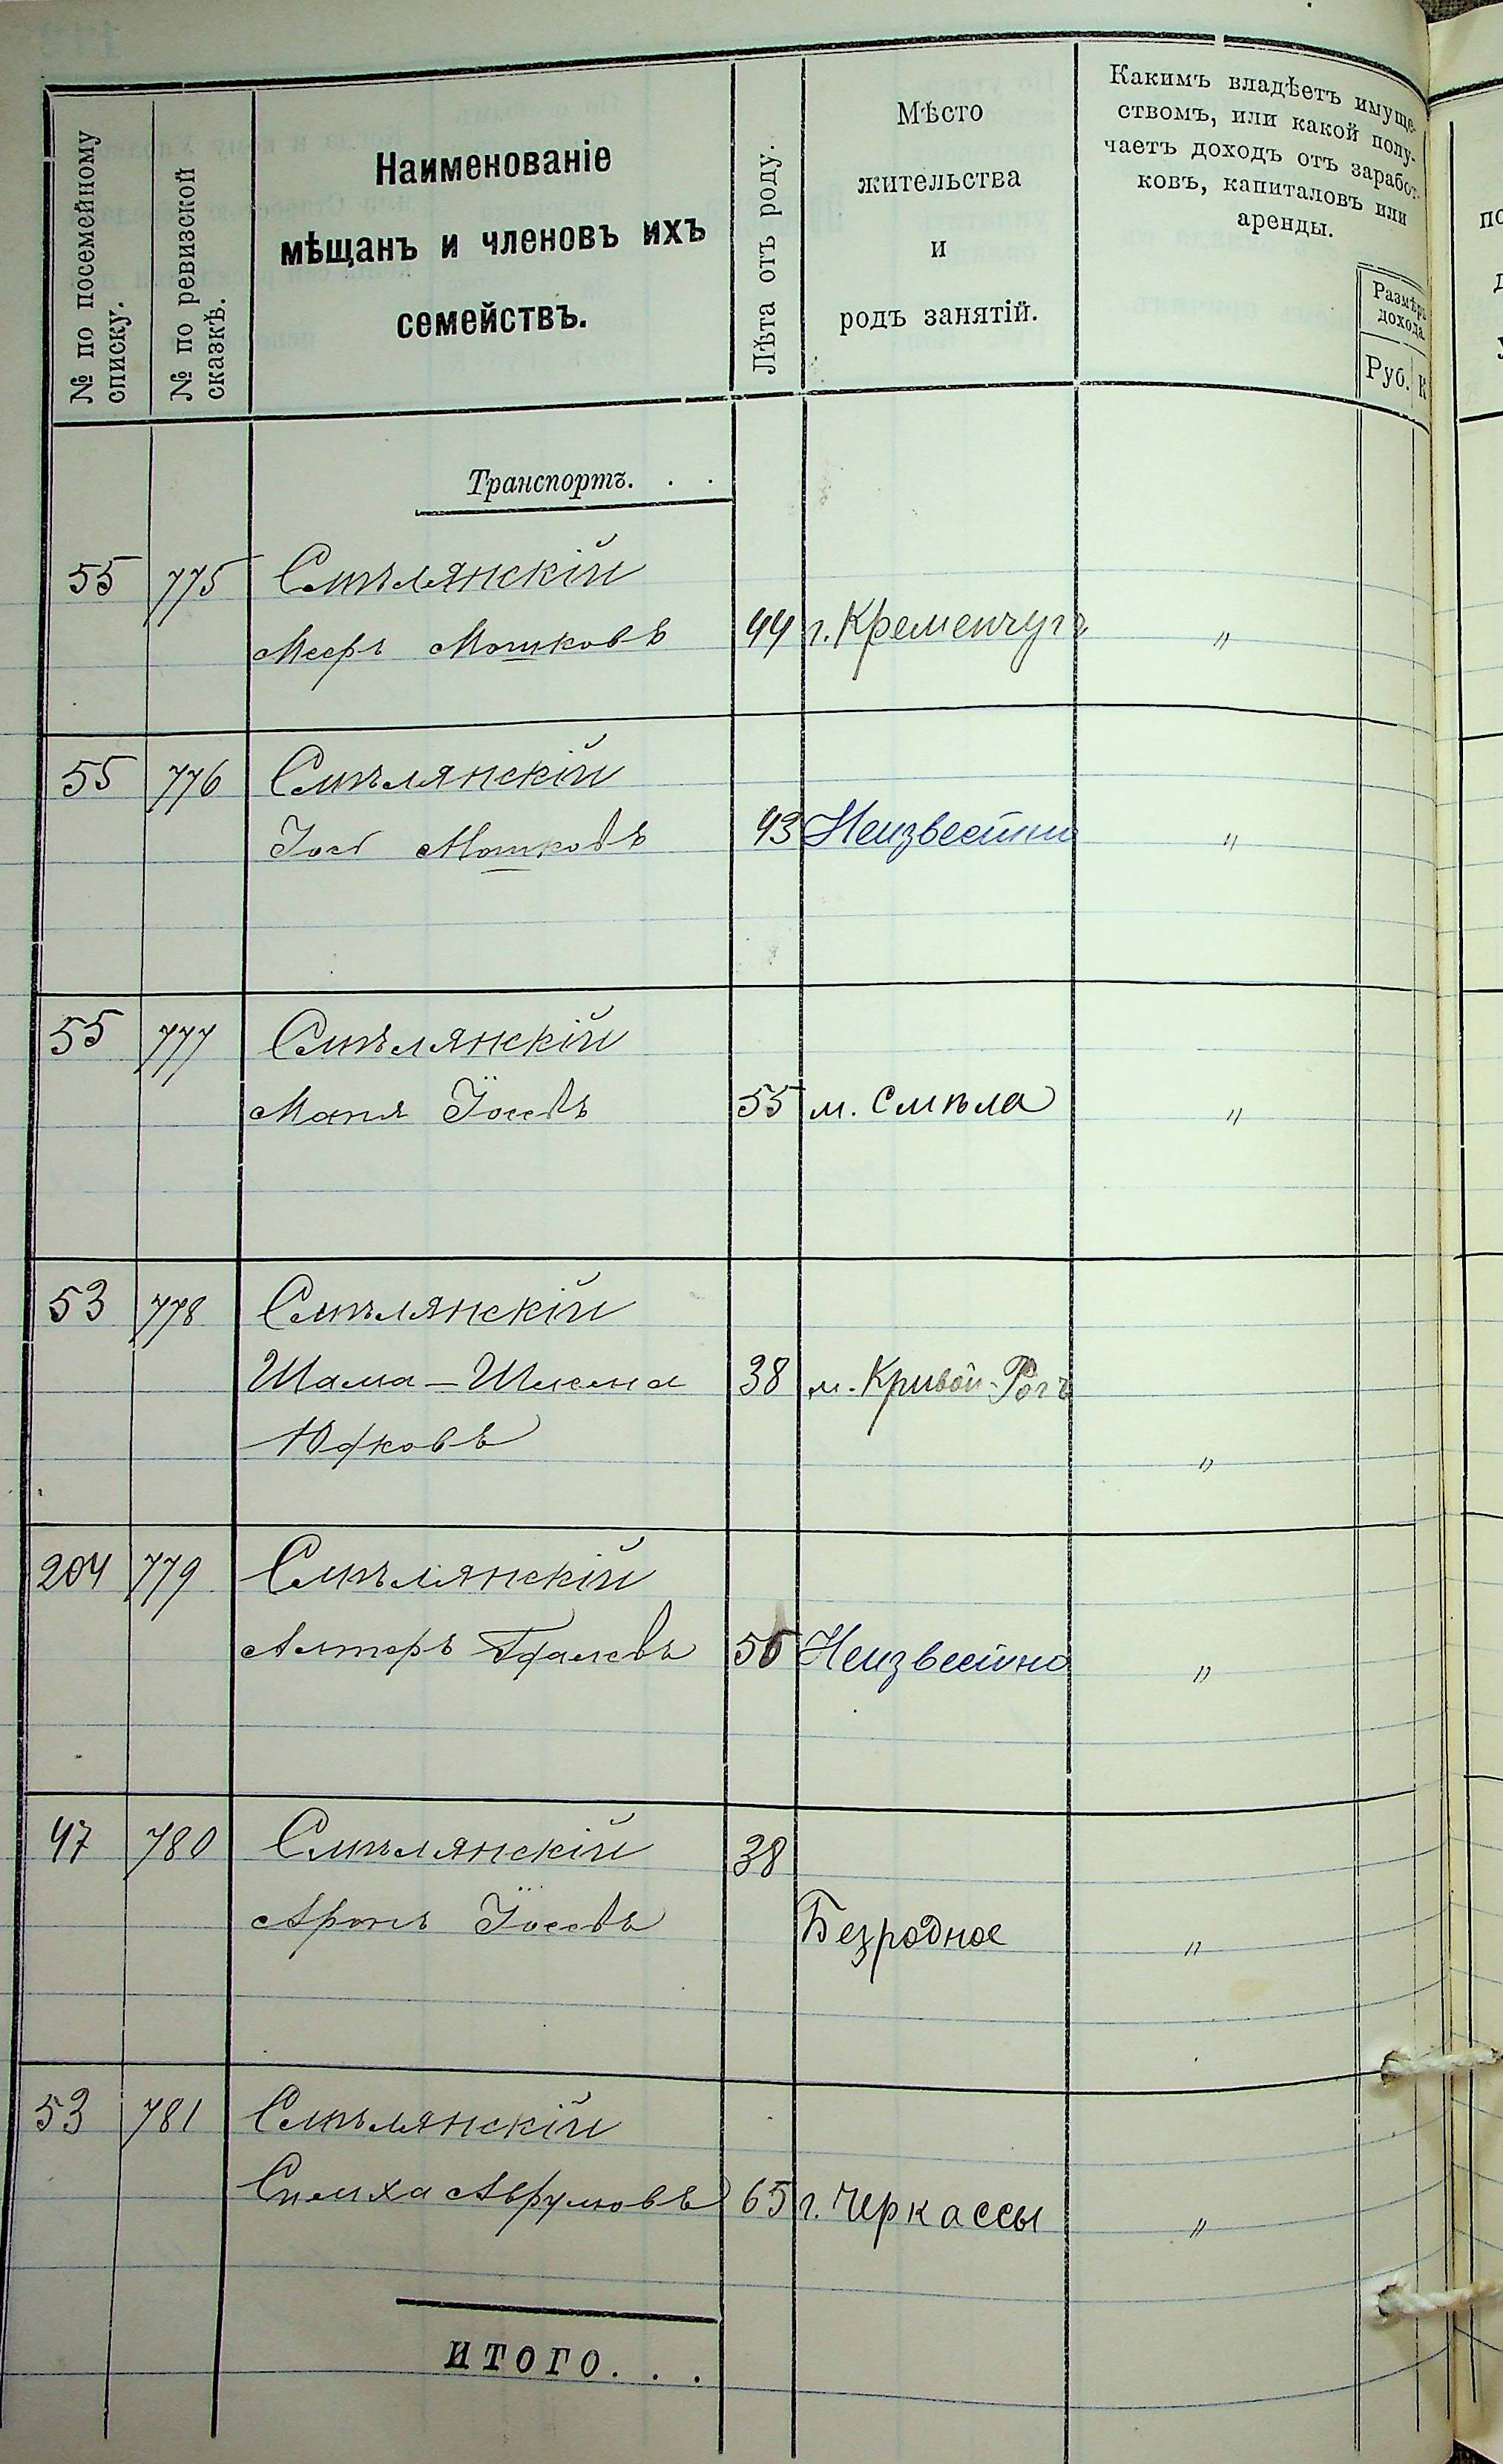 № по посемейному
списку.
№ по ревизской
сказкѣ.
Наименованіе
мѣщанъ и членовъ ихъ
семействъ.
Лѣта отъ роду.
Мѣсто
жительства
и
родъ занятій.
Какимъ владѣетъ имуще-
ствомъ, или какой полу-
чаетъ доходъ отъ заработ-
ковъ, капиталовъ или
аренды.
Размѣръ
дохода.
Руб. К
Транспортъ. . .
55 775 Смѣлянскій
Мееръ Мошковъ 44 г. Кременчугъ "
55 776 Смѣлянскій
Мошковъ 43 Неизвестно "
55 777 Смѣлянскій
55 м. Смѣла "
53 778 Смѣлянскій
Шама - 38 м. Кривой-Рогъ
Юдковъ "
204 779 Смѣлянскій
Алтеръ Неизвестно "
47 780 Смѣлянскій 38
Аронъ Іосевъ Безродное "
53 781 Смѣлянскій
Симха Аврумовъ 65 г. Черкассы "
ИТОГО. . .